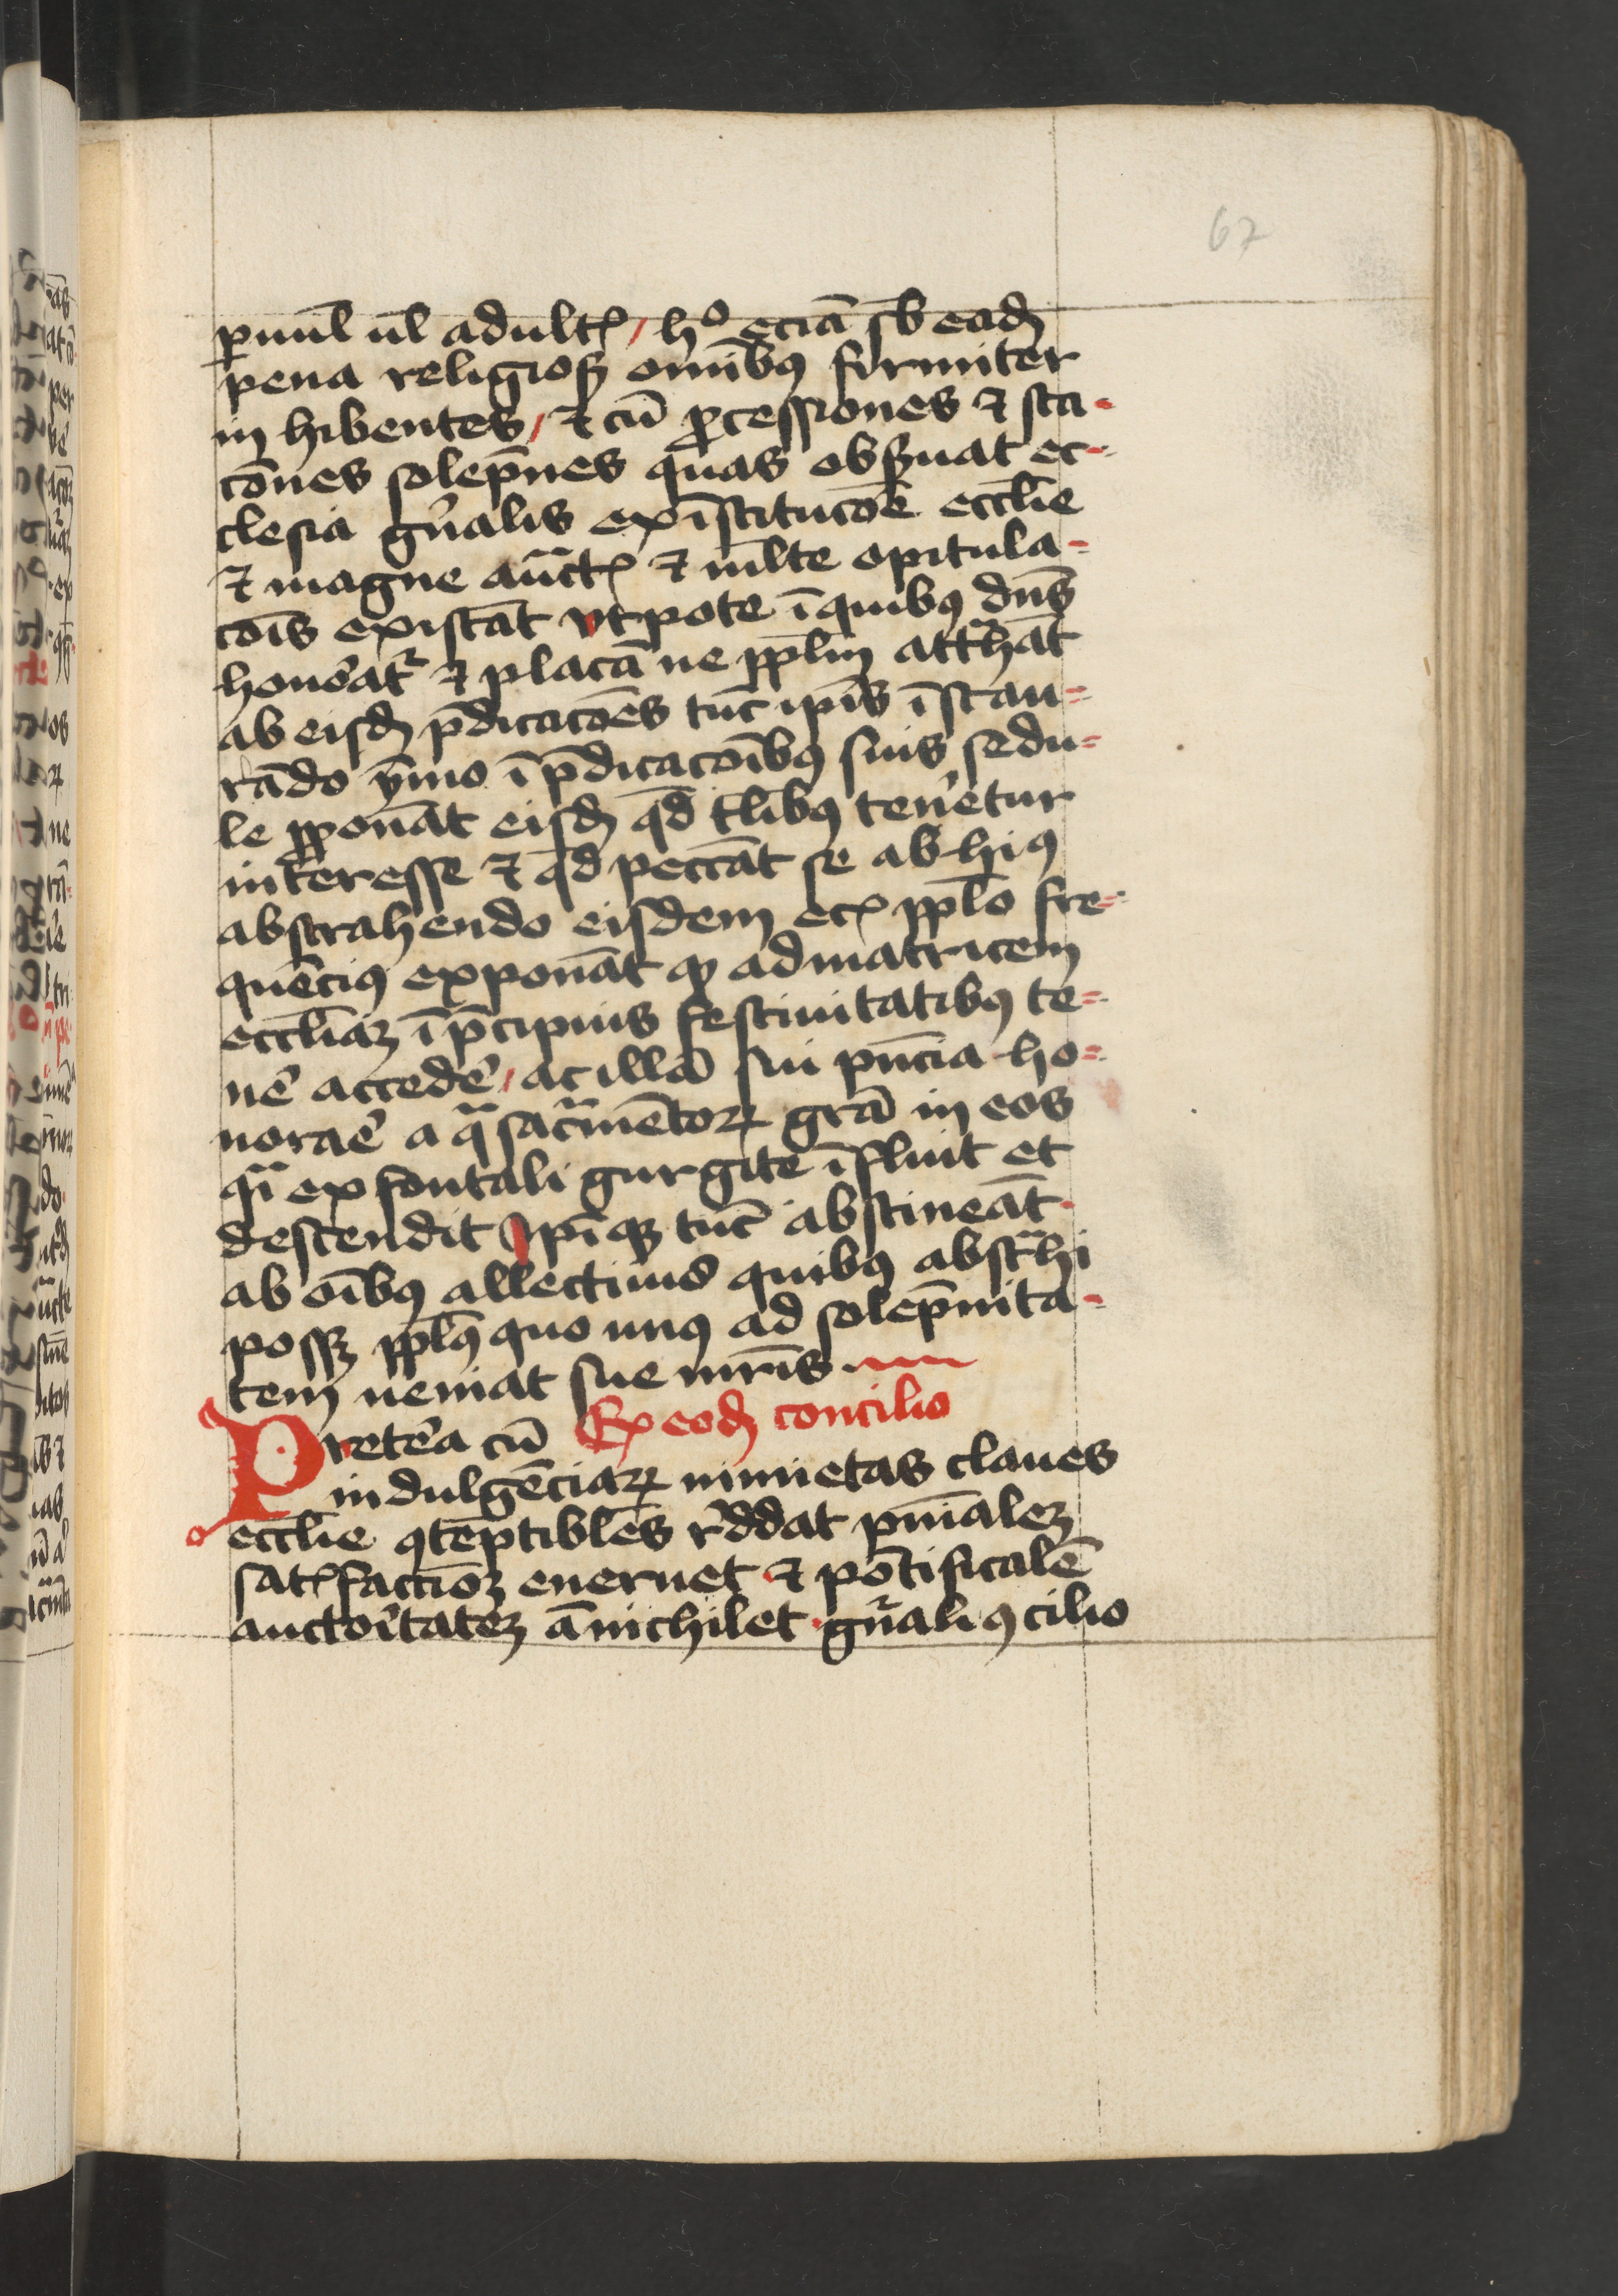 67
puul ul adultꝭ / hº eciā sb eadꝫ
pena religiosꝫ omībꝰ firmiter
in hibentes / ⁊ cū ꝓcessiones ⁊ sta-
cōnes solēpnes quas obẜuat ec-
clesia gn̄alis ex īstitucōē eccłie
⁊ magne auctꝭ ⁊ mlte opitula-
cōis existāt vtpote ī quibꝰ dn̄s
honoratᷣ ⁊ placā ne ppłm attᷓhāt
ab eisdꝫ p̄dicacōes tūc ip̄is īstau-
rādo ymo ī p̄dicacōibꝰ suis sedu-
le ꝓponāt eisdꝫ qd̄ tłibꝰ tenētur
int̄eresse ⁊ qd̄ peccāt se ab hiꝰ
abstrahendo eisdem ecꝭ ppło fre-
quēciꝰ exponāt ꝙ ad matricem
eccłiaꝫ ī p̄cipuis festiuitatibꝰ te-
nēt accedē / ac illā sui pn̄cia ho-
norāē a qᷓ sacᷓmētoꝝ grā in eos
qᷓ ex fontali gurgite īfluit et
descendit Ip̄iqꝫ tūc abstineāt
ab oībꝰ allectiuis quibꝰ abstᷓhi
possꝫ ppłs quo minꝰ ad solēpnita-
tem ueniat sue mr̄is
Ex eodꝫ concilio
Pretēa cū
indulgēciaꝝ nimietas claues
eccłie ꝯtēptibiles rᷣddat pn̄ialeꝫ
satꝭfactioꝫ eneruet ⁊ pōtificalē
auctōitateꝫ ānichilet gn̄ali ꝯcilio